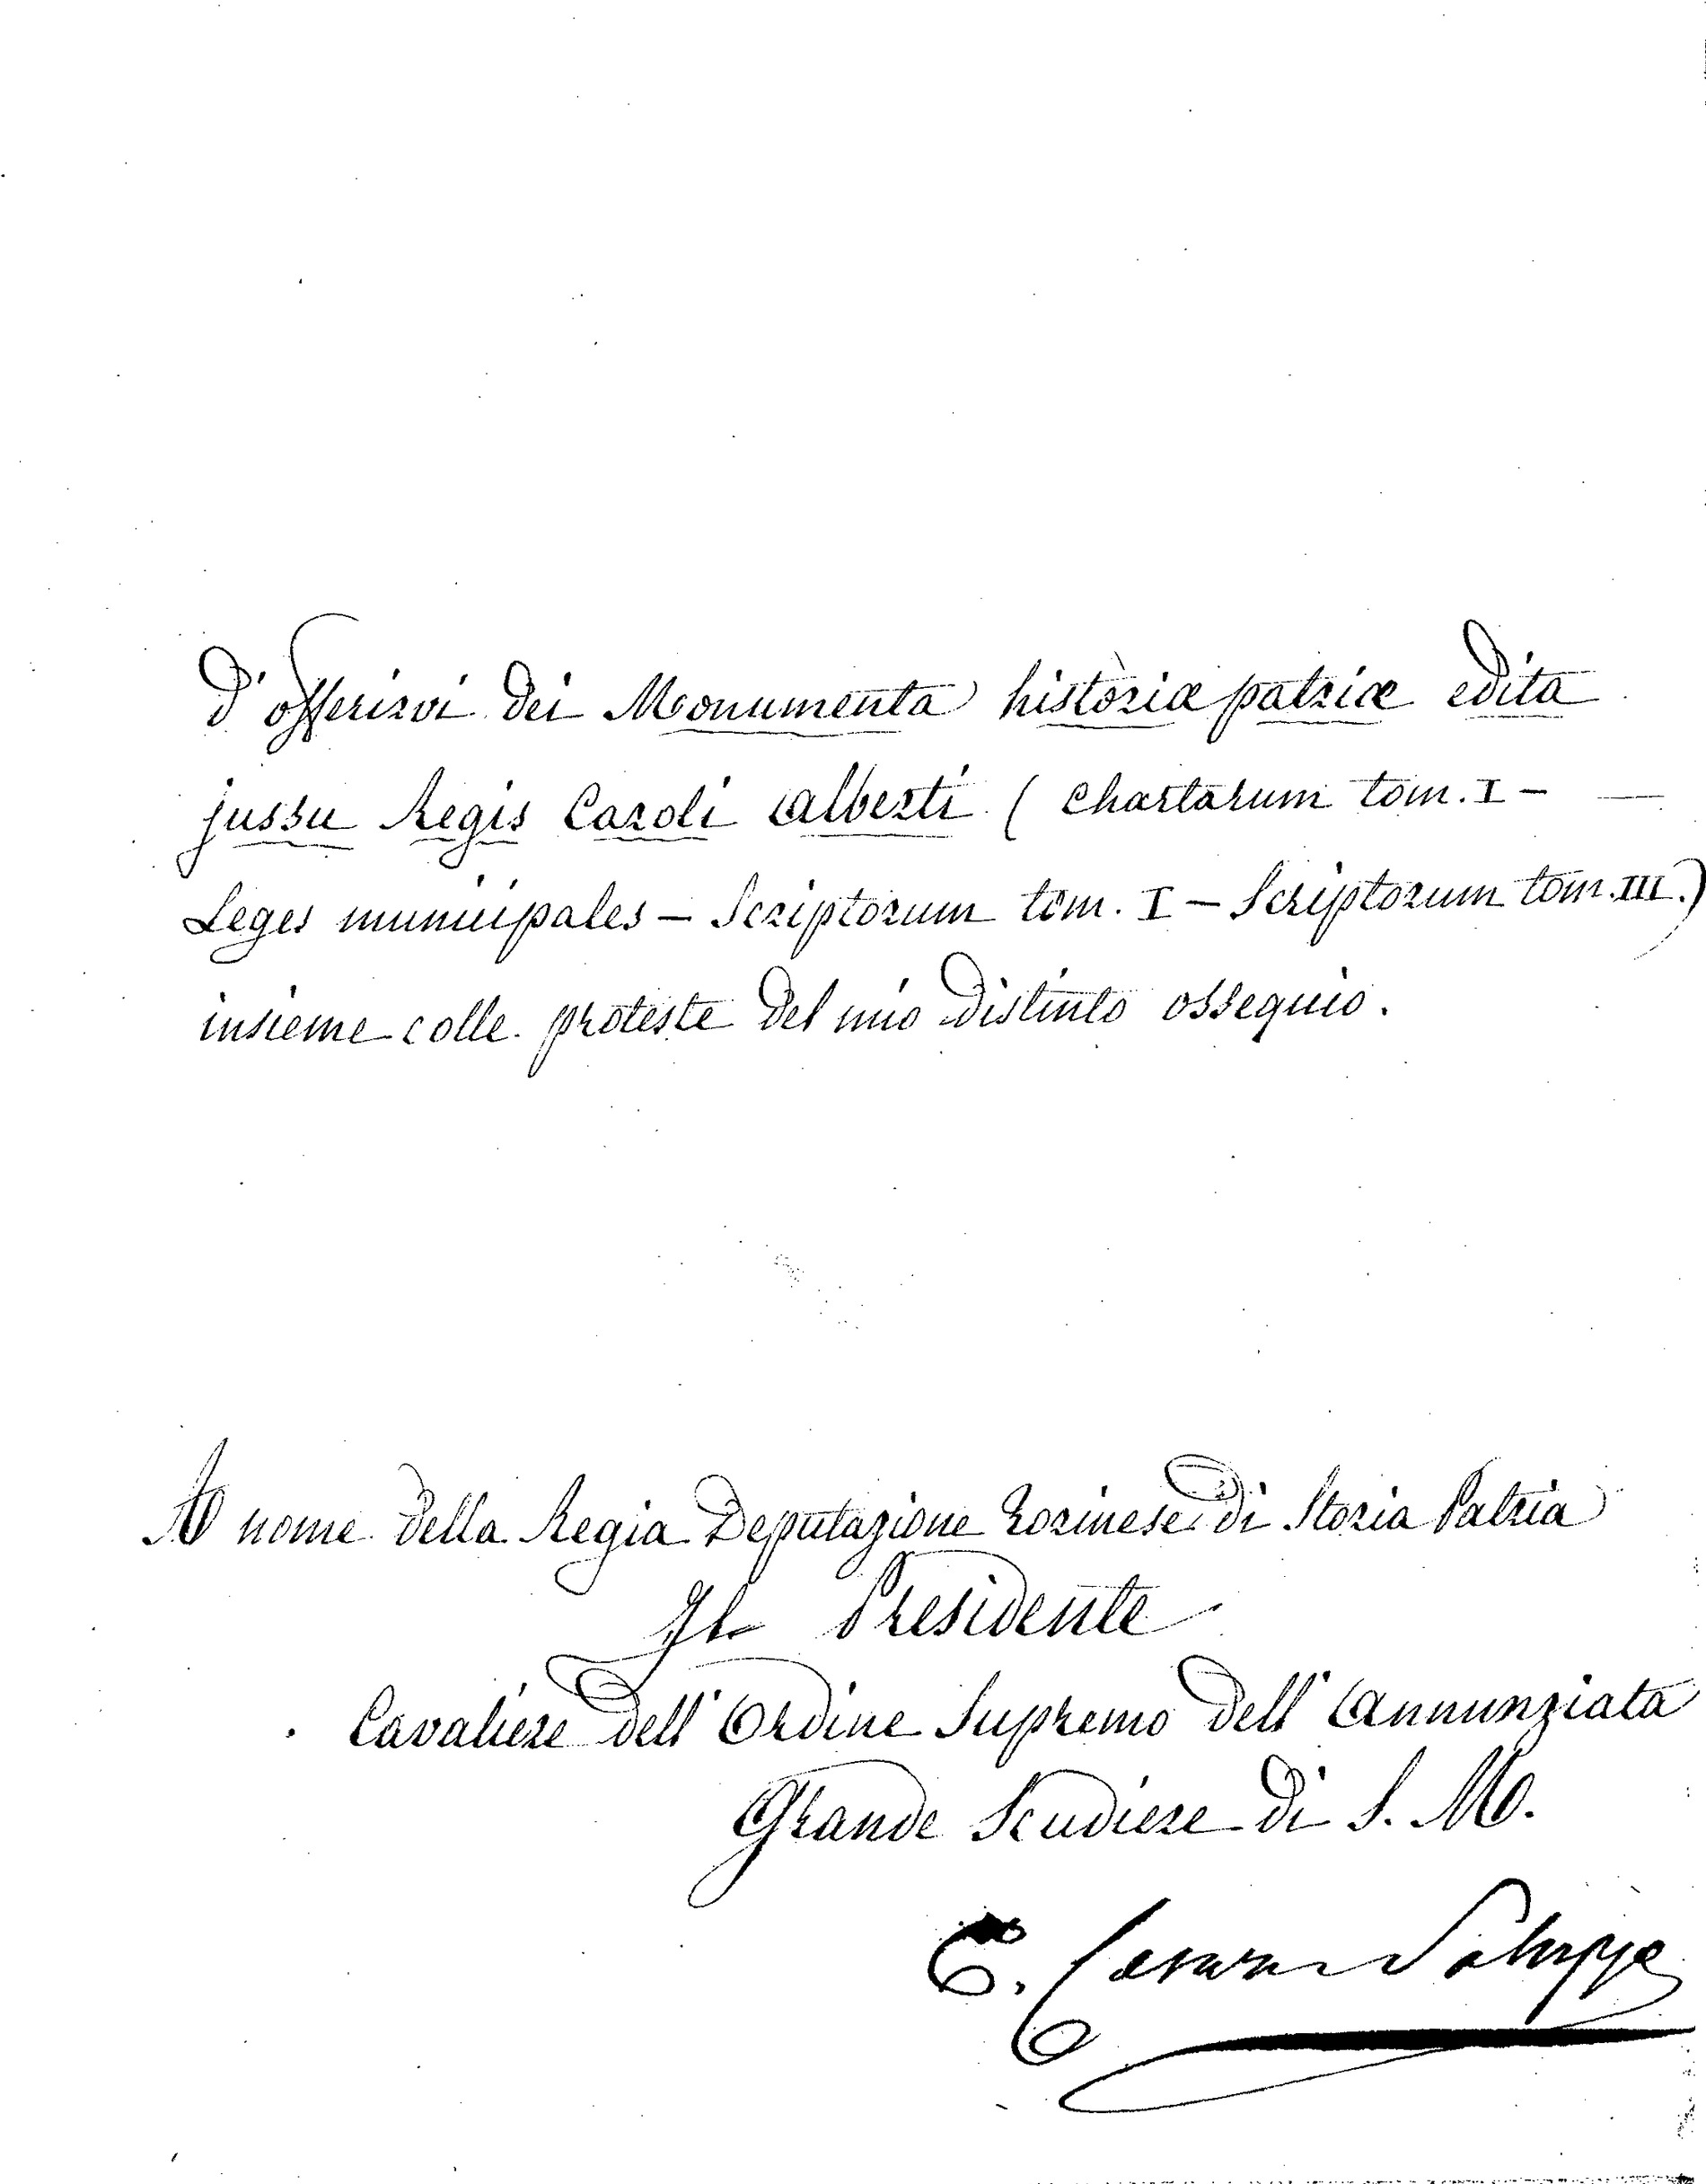 d'offerirvi dei Monumenta historiæ patriæ edita
jussu Regis Caroli Alberti (Chartarum tom. I –
Leges municipales – Scriptorum tom. I – Scriptorum tom. III.)
insieme colle proteste del mio distinto ossequio.
A nome della Regia Deputazione Torinese di Storia Patria
Il Presidente
Cavaliere dell'Ordine Supremo dell'Annunziata
Grande Scudiere di S. M.
C.